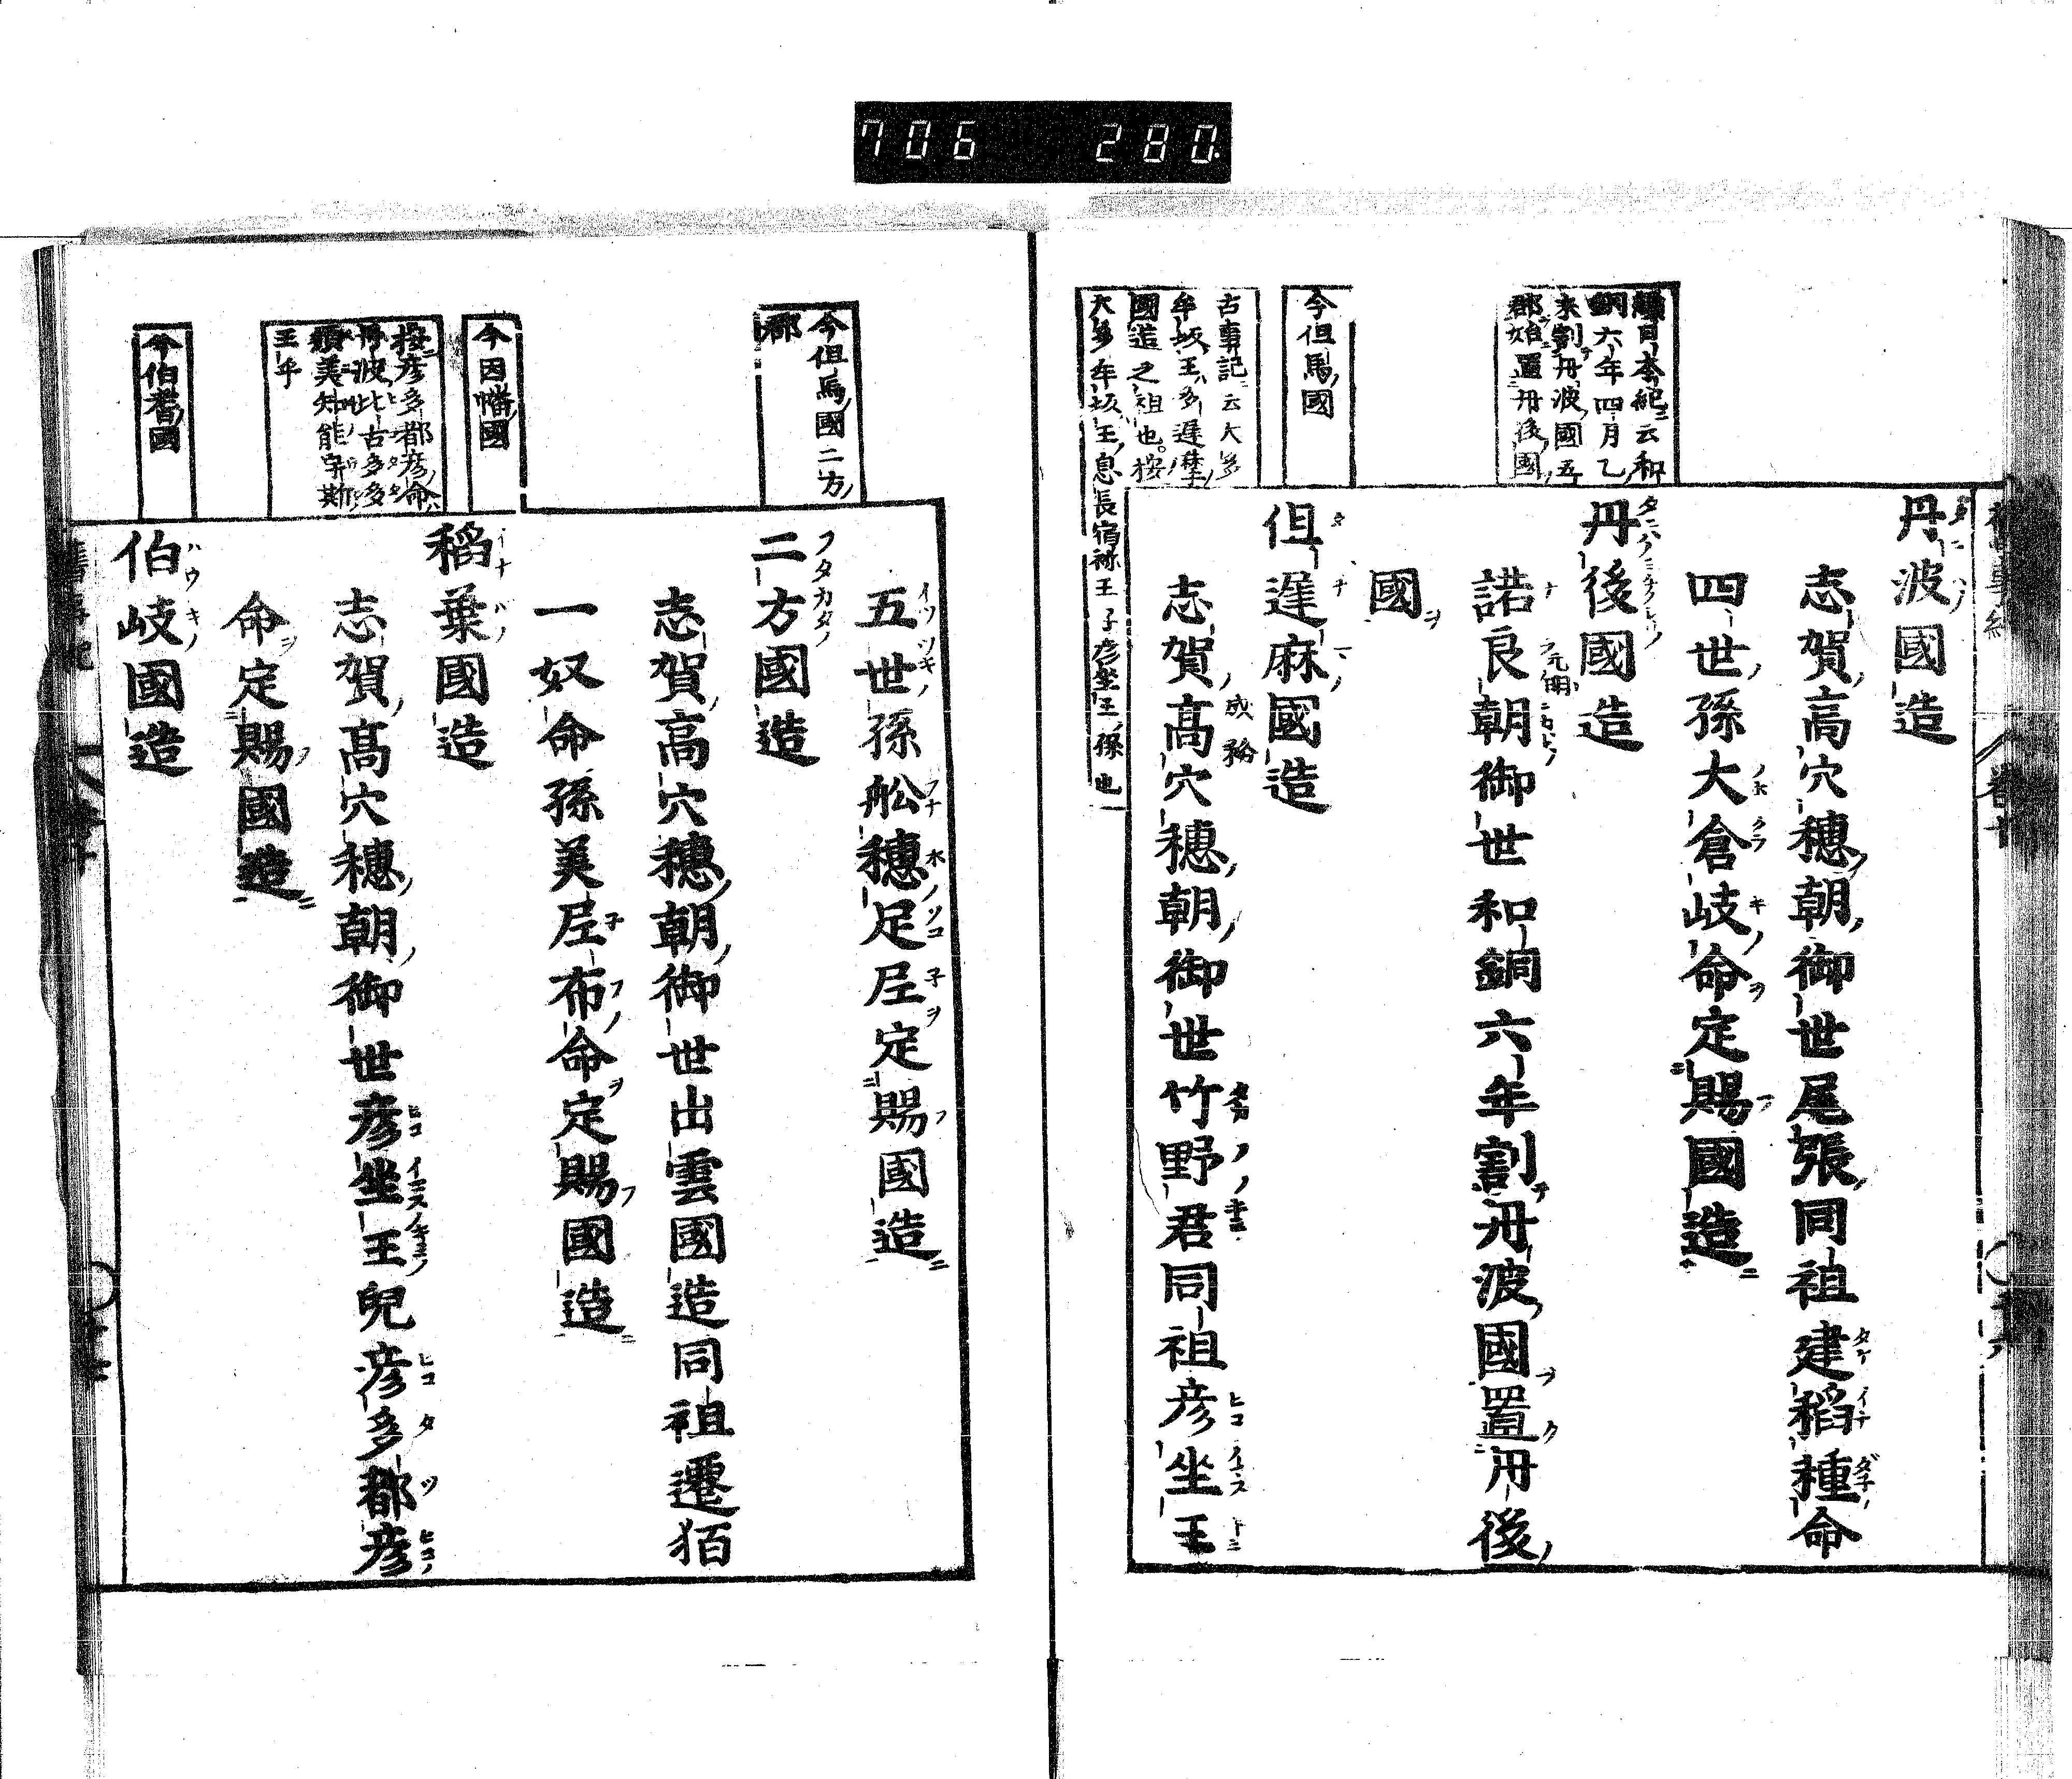 706 280
續日本紀云和
銅六年四月乙
未割丹波國五
郡始置丹後國
今但馬國
古事記云大多
牟坂王多遅摩
國造之祖也按
大多牟坂王息長宿祢王子彦坐王孫也
丹波國造
志賀高穴穗朝御世尾張同祖建稻種命
四世孫大倉岐命定賜國造
丹後國造
諾良朝御世和銅六年割丹波國置丹後
國
但遅麻國造
志賀高穴穗朝御世竹野君同祖彦坐王
今但馬國二方
郡
今因幡國
按彦多都彦命
丹波比古多多
須美知能宇斯
王乎
今伯耆國
五世孫舩穗足尼定賜國造
二方國造
志賀高穴穗朝御世出雲國造同祖遷狛
一奴命孫美尼布命定賜國造
稻葉國造
志賀高穴穗朝御世彦坐王兒彦多都彦
命定賜國造
伯岐國造